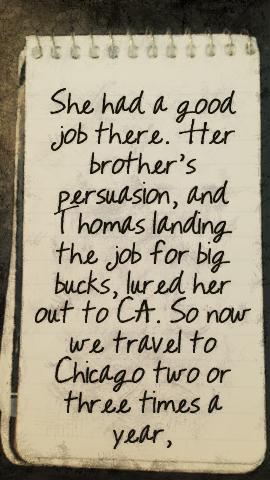 She had a good
job there. Her
brother's
persuasion, and
Thomas landing
the job for big
bucks, lured her
out to CA. So now
we travel to
Chicago two or
three times a
year,